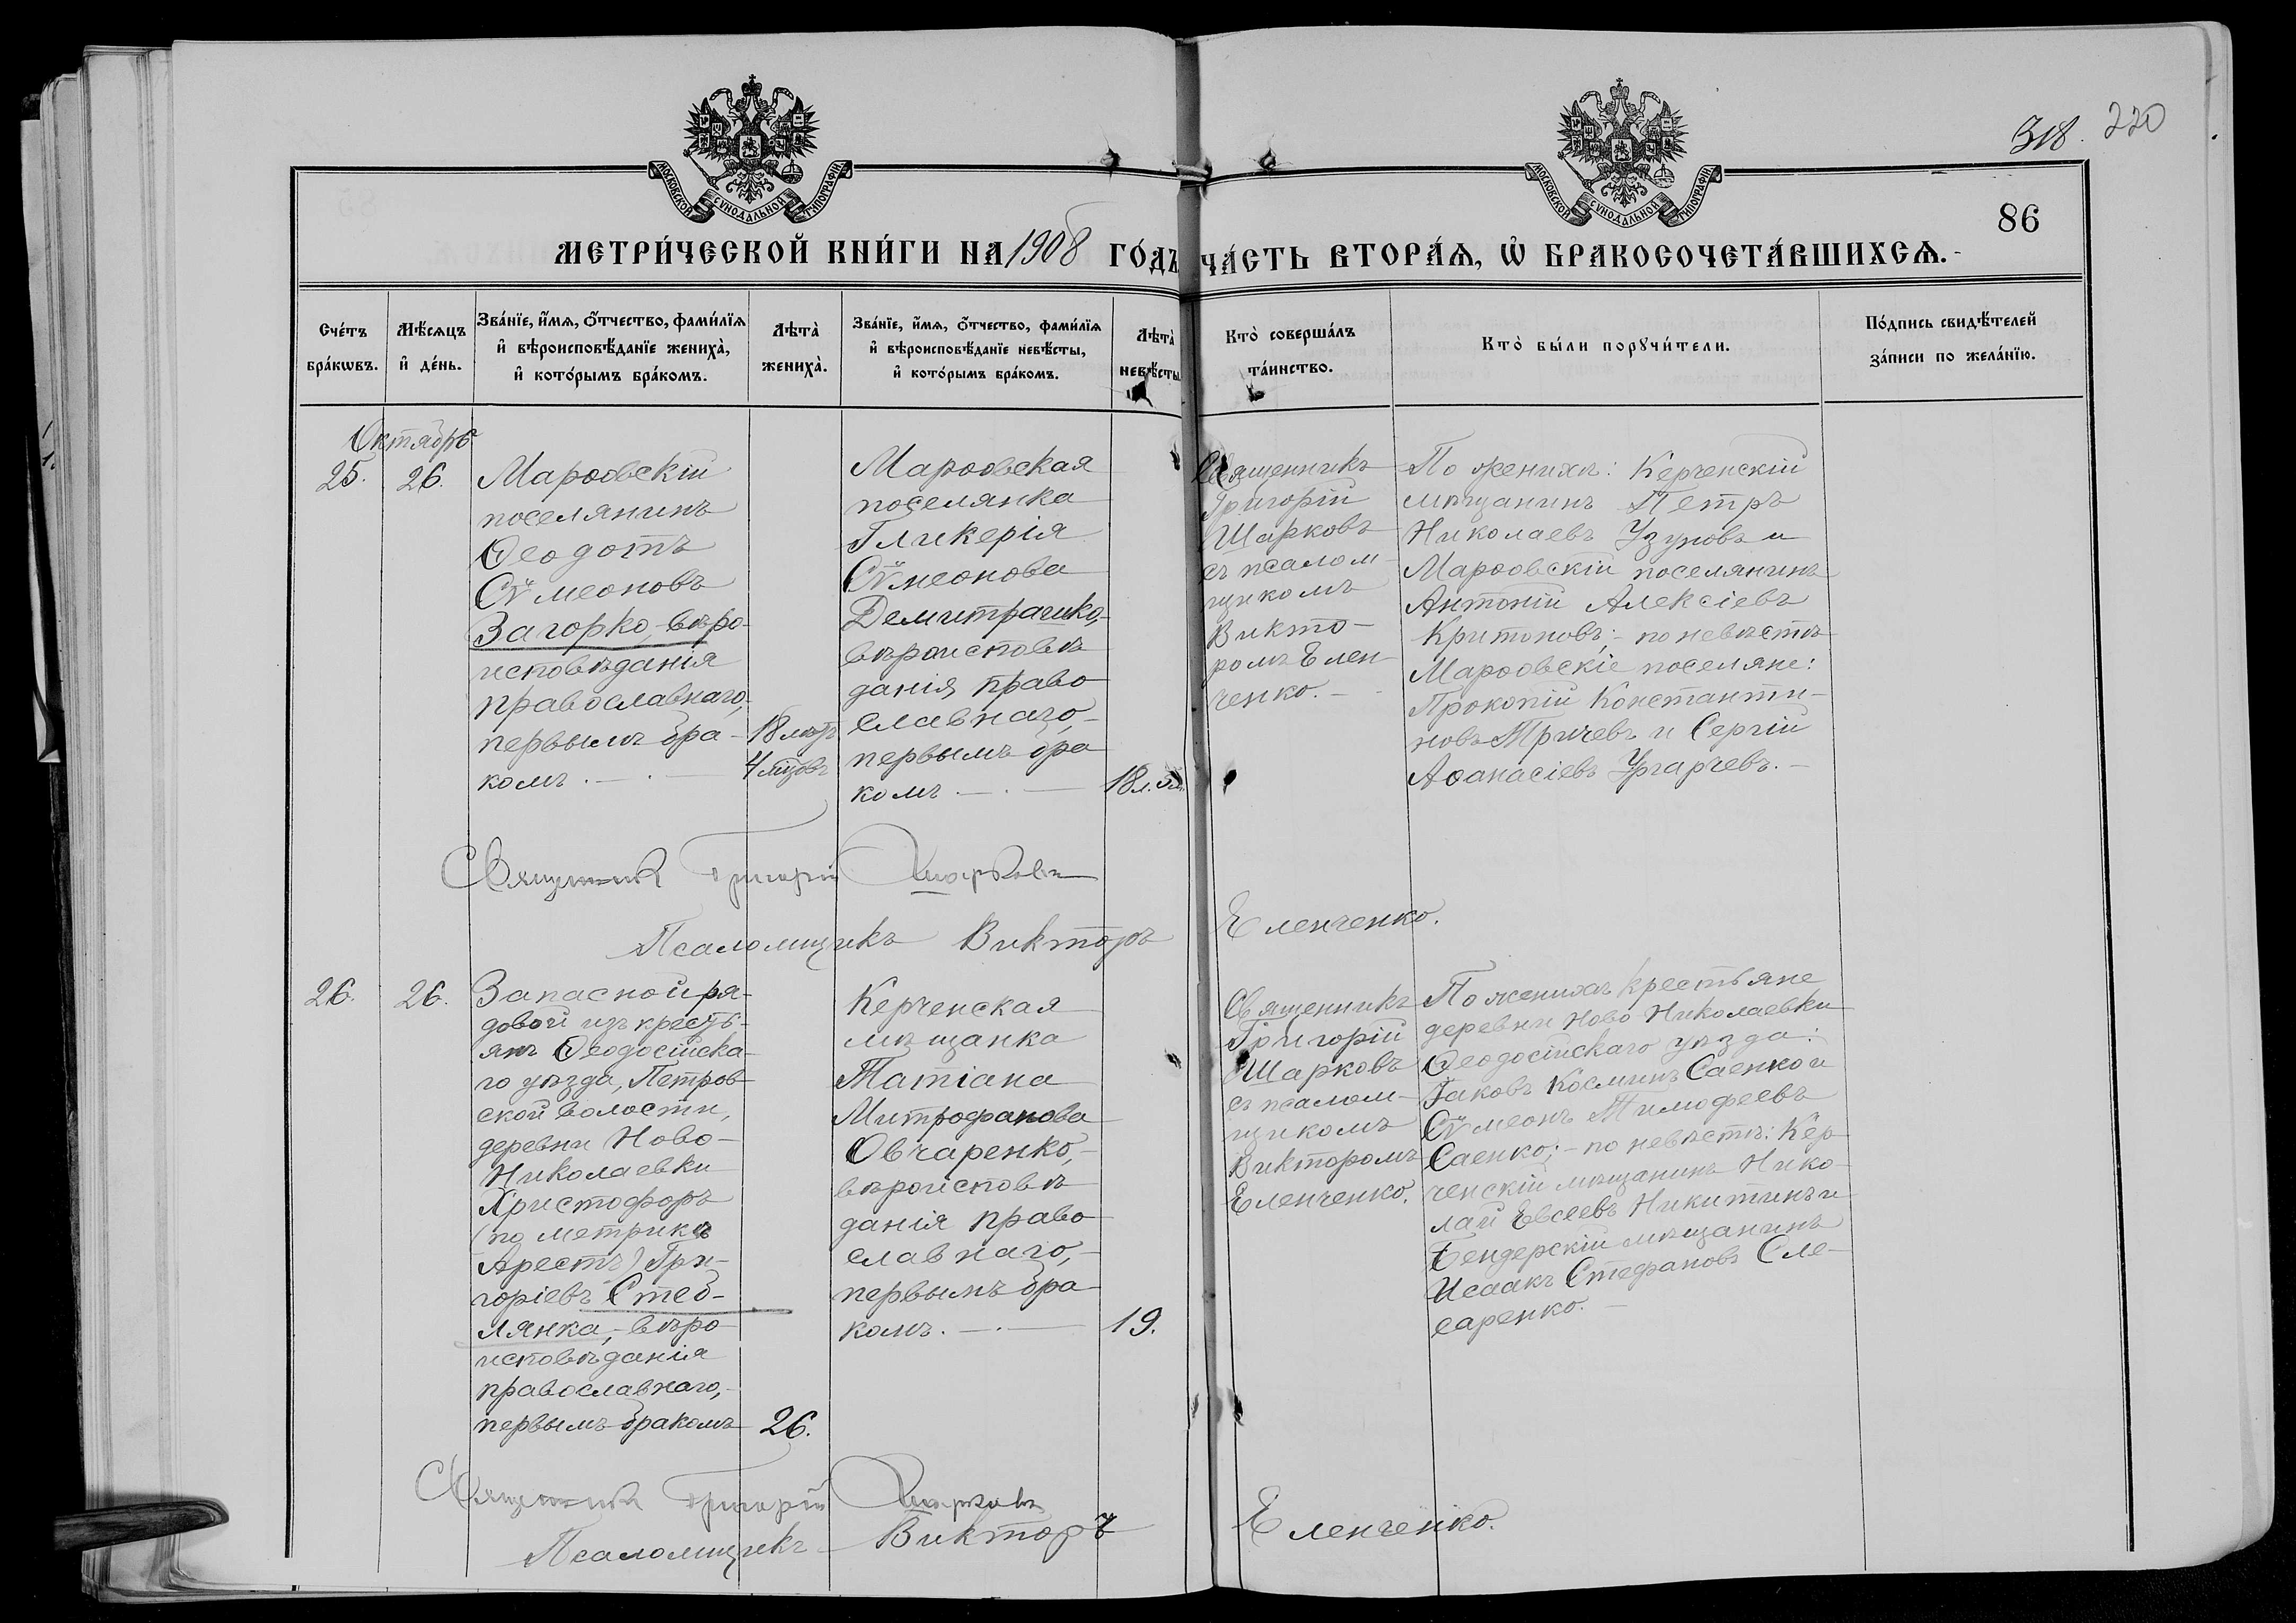 318. 220
МОСКОВСКОЙ СѴНОДАЛЬНОЙ ТИПОГРАФІИ
МОСКОВСКОЙ СѴНОДАЛЬНОЙ ТИПОГРАФІИ
86
МЕТРИ́ЧЕСКОЙ КНИ́ГИ НА 1908 ГО́ДЪ ЧА́СТЬ ВТОРА́Ѧ, Ѽ БРАКОСОЧЕТА́ВШИХСѦ.
Сче́тъ
бра́кѡвъ.
Мѣ́сѧцъ
и҆ де́нь.
Зва́нїе, и҆́мѧ, ѻ҆́тчество, фами́лїѧ
и҆ вѣроисповѣ́данїе жениха̀,
и҆ кото́рымъ бра́комъ.
Лѣта̀
жениха̀.
Зва́нїе, и҆́мѧ, ѻ҆́тчество, фами́лїѧ
и҆ вѣроисповѣ́данїе невѣ́сты,
и҆ кото́рымъ бра́комъ.
Лѣта̀
невѣ́сты
Кто̀ соверша́лъ
та́инство.
Кто̀ бы́ли порꙋчи́тели.
По́дпись свидѣ́телей
за́писи по жела́нїю.
Октябрь
25.
26.
Марѳовскій
поселянинъ
Ѳеодотъ
Сѵмеоновъ
Загорко, вѣро-
исповѣданія
православнаго,
первымъ бра-
комъ.
18 лѣтъ
4 мѣцовъ
Марѳовская
поселянка
Гликерія
Сѵмеонова
Демитрашко,-
вѣроисповѣ
данія право
славнаго,-
первымъ бра
комъ
Священникъ
Григорій
Шарковъ
съ псалом-
щикомъ
Викто-
ромъ Елен-
ченко.
По женихѣ: Керченскій
мѣщанинъ Петръ
Николаевъ Узуновъ и
Марѳовскій поселянинъ
Антоній Алексіевъ
Критоновъ;- по невѣстѣ
Марѳовскіе поселяне:
Прокопій Константи-
новъ Тричевъ и Сергій
Аѳанасіевъ Ургарчевъ.
Священникъ Григорій Шарковъ
Псаломщикъ Викторъ Еленченко.
26.
26.
Запасной ря-
довой изъ кресть-
янъ Ѳеодосійска-
го уѣзда, Петров-
ской волости,
деревни Ново-
Николаевки
Христофоръ
(по метрикѣ
Арестъ) Гри-
горіевъ Стеб-
лянка,- вѣро-
исповѣданія
православнаго,-
первымъ бракомъ
26.
Керченская
мѣщанка
Татіана
Митрофанова
Овчаренко,-
вѣроисповѣ
данія право
славнаго,-
первымъ бра
комъ.
19.
Священникъ
Григорій
Шарковъ
съ псалом-
щикомъ
Викторомъ
Еленченко.
По женихѣ крестьяне
деревни Ново-Николаевки
Ѳеодосійскаго уѣзда:
Іаковъ Косминъ Саенко и
Сѵмеонъ Тимофеевъ
Саенко;- по невѣстѣ: Кер
ченскій мѣщанинъ Нико-
лай Евсеевъ Никитинъ и
Бендерскій мѣщанинъ
Исаакъ Стефановъ Сле-
саренко.
Священникъ Григорій Шарковъ
Псаломщикъ Викторъ Еленченко.